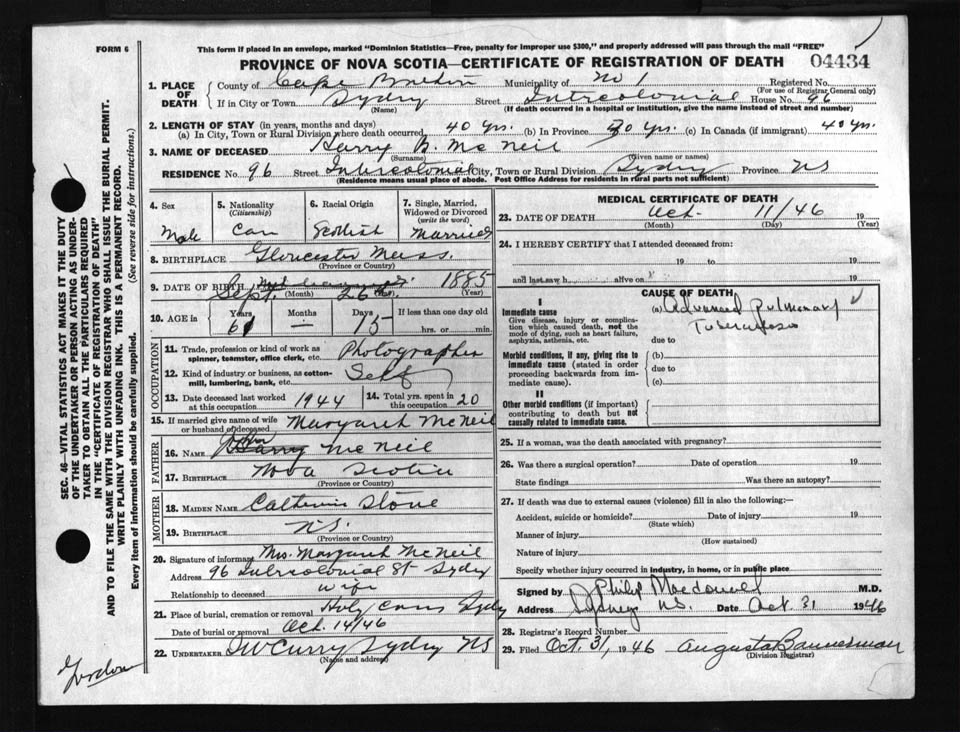 FORM 6
This form if placed in an envelope, marked "Dominion Statistics—Free, penalty for improper use $300," and properly addressed will pass through the mail "FREE"
PROVINCE OF NOVA SCOTIA—CERTIFICATE OF REGISTRATION OF DEATH 04434
1. PLACE OF DEATH County of Cape Breton Municipality of No 1 Registered No.
(For use of Registrar General only)
If in City or Town Sydney Street Intercolonial House No. 96
(Name) (If death occurred in a hospital or institution, give the name instead of street and number)
2. LENGTH OF STAY (in years, months and days)
(a) In City, Town or Rural Division where death occurred 40 yrs. (b) In Province 30 yrs. (c) In Canada (if immigrant) 40 yrs.
3. NAME OF DECEASED Harry B. McNeil
(Surname) (Given name or names)
RESIDENCE No. 96 Street Intercolonial City, Town or Rural Division Sydney Province NS
(Residence means usual place of abode. Post Office Address for residents in rural parts not sufficient)
4. Sex
Male
5. Nationality
(Citizenship)
Can
6. Racial Origin
Scottish
7. Single, Married, Widowed or Divorced
(write the word)
Married
8. BIRTHPLACE Gloucester Mass.
(Province or Country)
9. DATE OF BIRTH Sept. 26 1885
(Month) (Day) (Year)
10. AGE in Years Months Days If less than one day old
61 — 15 hrs. or min.
OCCUPATION
11. Trade, profession or kind of work as spinner, teamster, office clerk, etc. Photographer
12. Kind of industry or business, as cotton-mill, lumbering, bank, etc. Self
13. Date deceased last worked at this occupation 1944
14. Total yrs. spent in this occupation 20
15. If married give name of wife or husband of deceased Margaret McNeil
FATHER
16. NAME John Harry McNeil
17. BIRTHPLACE Nova Scotia
(Province or Country)
MOTHER
18. MAIDEN NAME Catherine Stone
19. BIRTHPLACE N.S.
(Province or Country)
20. Signature of informant Mrs. Margaret McNeil
Address 96 Intercolonial St Sydney
Relationship to deceased wife
21. Place of burial, cremation or removal Holy Cross Sydney
Date of burial or removal Oct. 14/46
22. UNDERTAKER TW Curry Sydney NS
(Name and address)
MEDICAL CERTIFICATE OF DEATH
23. DATE OF DEATH Oct. 11/46 19
(Month) (Day) (Year)
24. I HEREBY CERTIFY that I attended deceased from:
19 to 19
and last saw h alive on 19
CAUSE OF DEATH
I
Immediate cause
Give disease, injury or complication which caused death, not the mode of dying, such as heart failure, asphyxia, asthenia, etc.
(a) Advanced Pulmonary Tuberculosis
due to
Morbid conditions, if any, giving rise to immediate cause (stated in order proceeding backwards from immediate cause).
(b)
due to
(c)
II
Other morbid conditions (if important) contributing to death but not causally related to immediate cause.
25. If a woman, was the death associated with pregnancy?
26. Was there a surgical operation? Date of operation 19
State findings Was there an autopsy?
27. If death was due to external causes (violence) fill in also the following:—
Accident, suicide or homicide? Date of injury 19
(State which)
Manner of injury
(How sustained)
Nature of injury
Specify whether injury occurred in industry, in home, or in public place
Signed by Philip Macdonald M.D.
Address Sydney N.S. Date Oct. 31 1946
28. Registrar's Record Number
29. Filed Oct. 31, 1946 Augusta Bannerman
(Division Registrar)
SEC. 46—VITAL STATISTICS ACT MAKES IT THE DUTY
OF THE UNDERTAKER OR PERSON ACTING AS UNDER-
TAKER TO OBTAIN ALL THE PARTICULARS REQUIRED
IN THE "CERTIFICATE OF REGISTRATION OF DEATH"
AND TO FILE THE SAME WITH THE DIVISION REGISTRAR WHO SHALL ISSUE THE BURIAL PERMIT.
WRITE PLAINLY WITH UNFADING INK. THIS IS A PERMANENT RECORD.
Every item of information should be carefully supplied. (See reverse side for instructions.)
Gordon